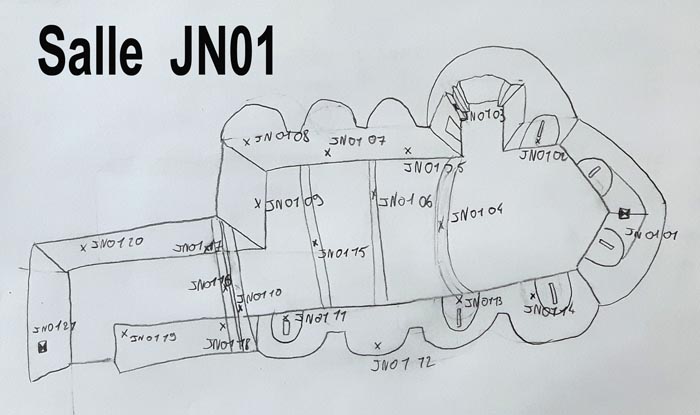 Salle JN01
JN0108
JN0107
JN0103
JN0105
JN0102
JN0109
JN0106
JN0104
JN0101
JN0120
JN0117
JN0115
JN0116
JN0110
JN0111
JN0113
JN0114
JN0121
JN0119
JN0118
JN0112